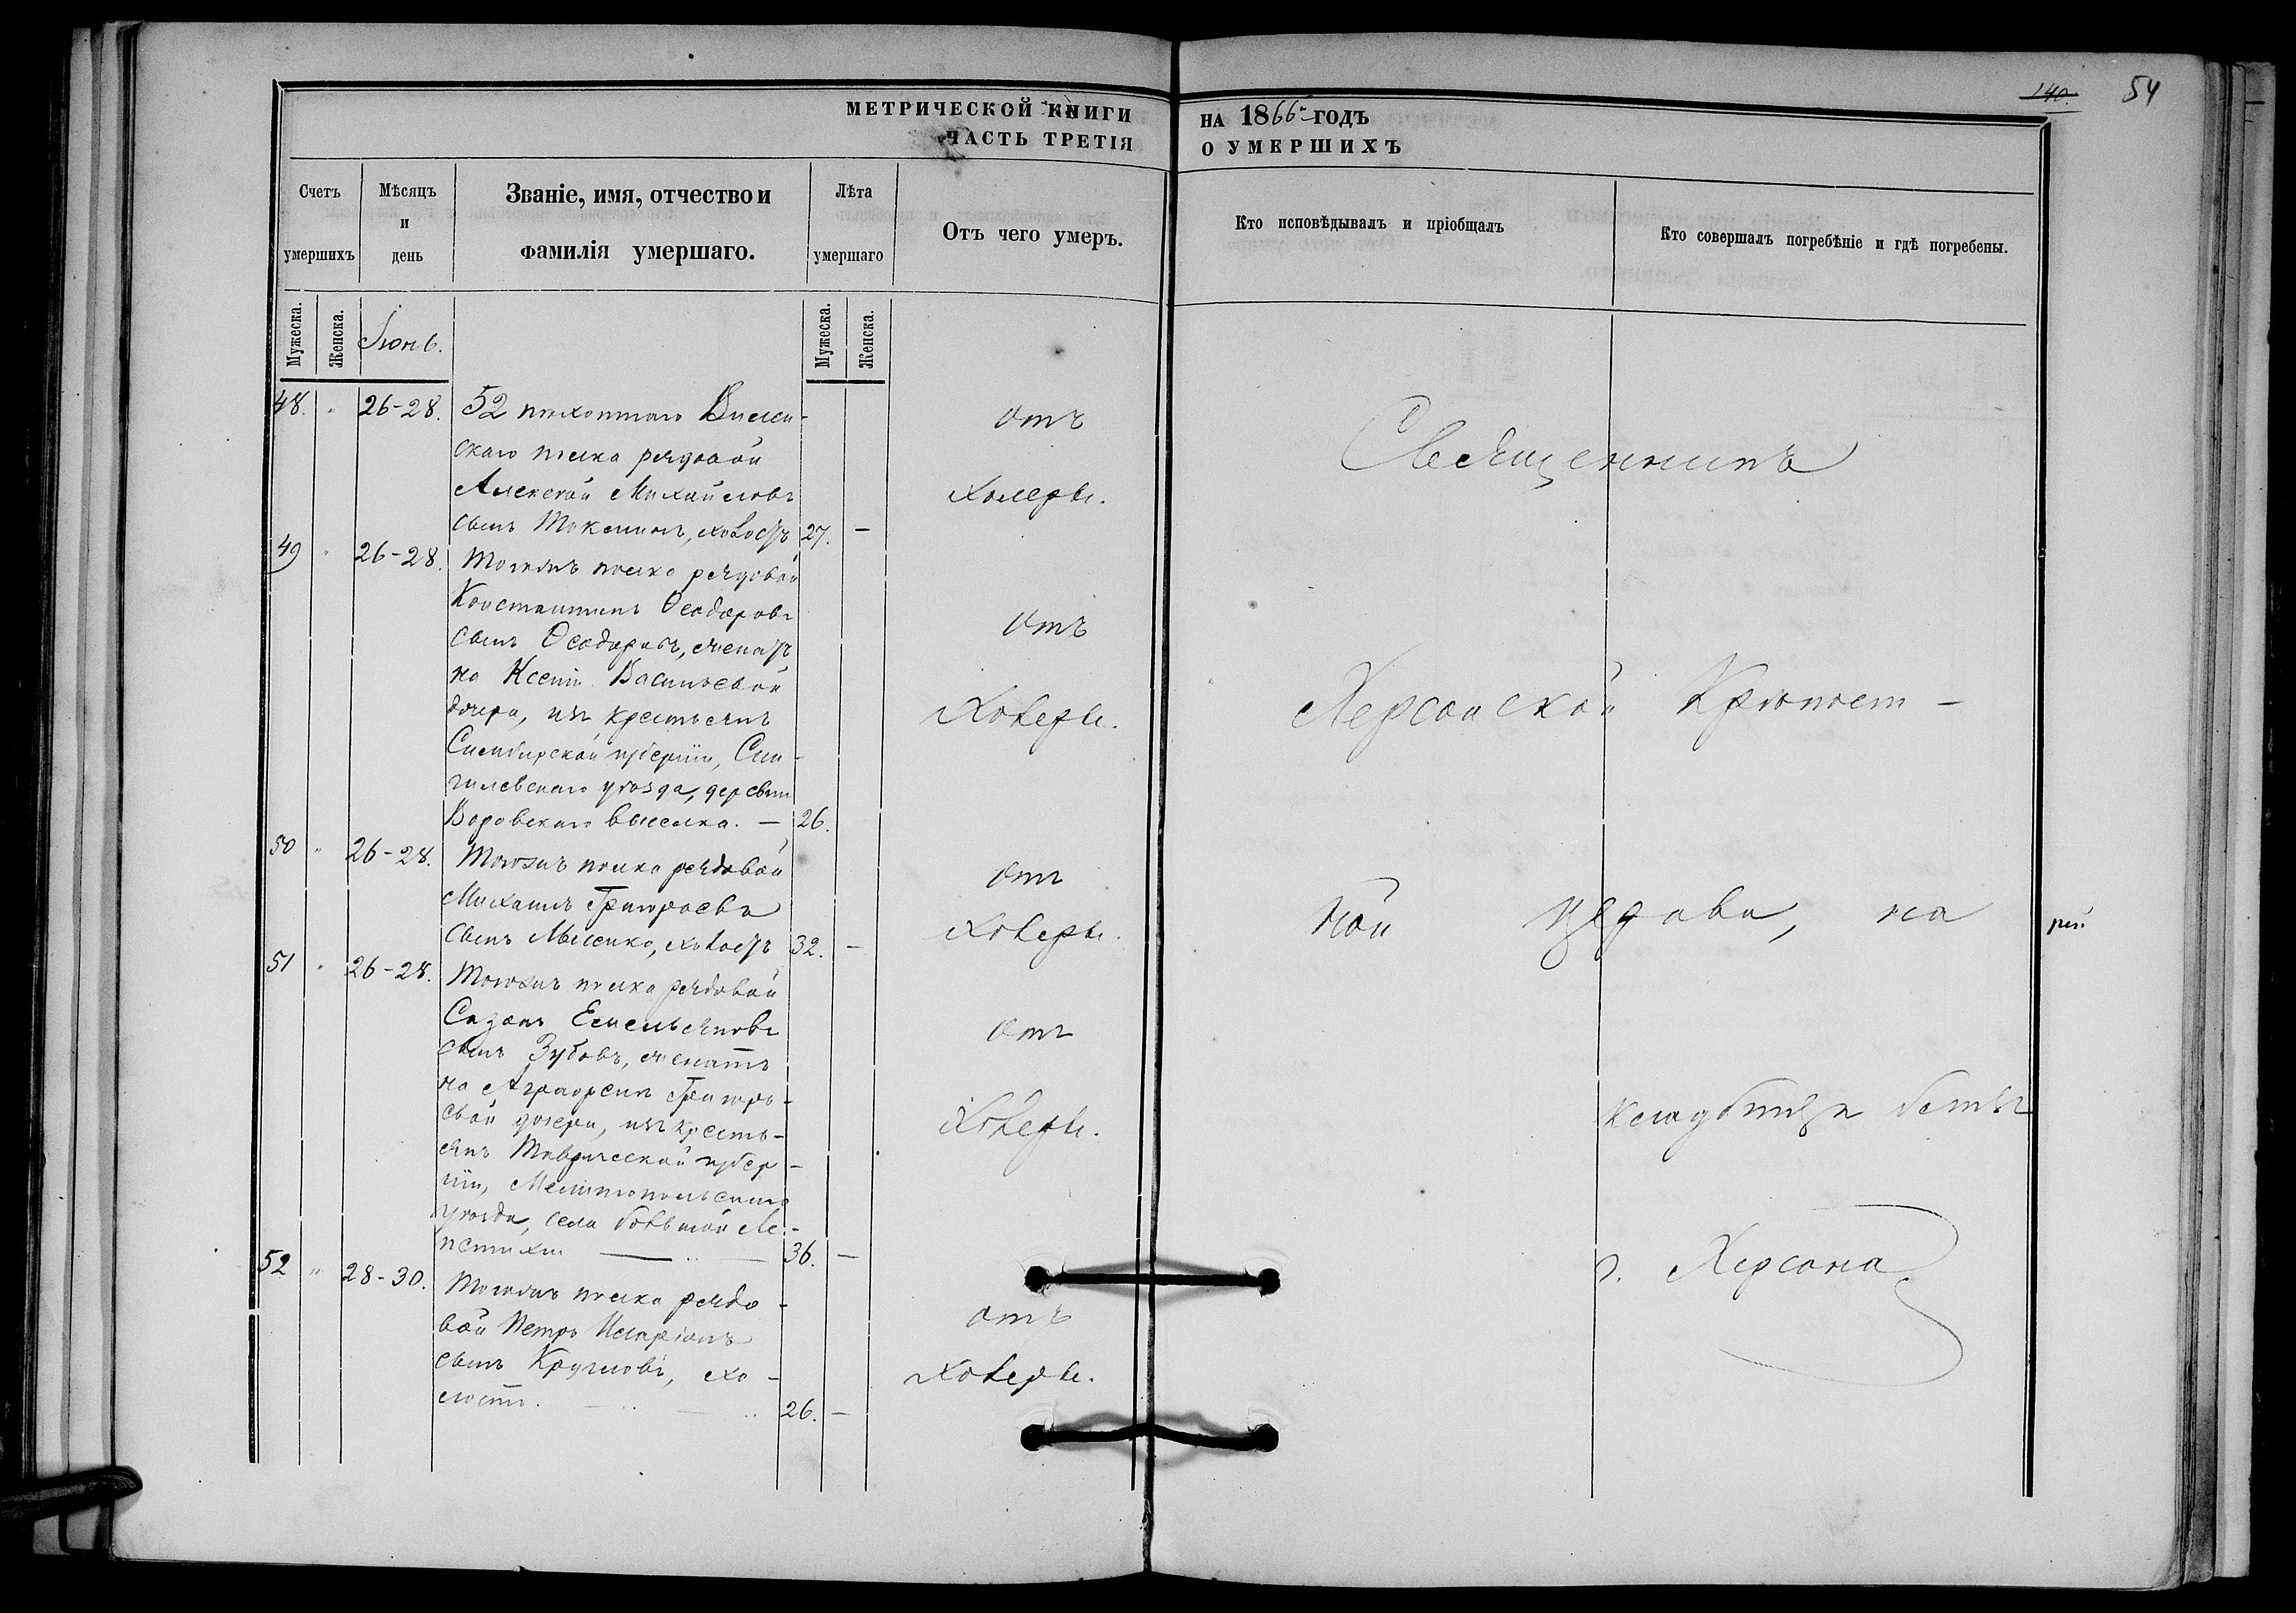 140. 54
МЕТРИЧЕСКОЙ КНИГИ НА 1866 ГОДЪ
ЧАСТЬ ТРЕТІЯ О УМЕРШИХЪ
Счетъ умершихъ
Мѣсяцъ и день
Званіе, имя, отчество и фамилія умершаго.
Лѣта умершаго
Отъ чего умеръ.
Кто исповѣдывалъ и пріобщалъ
Кто совершалъ погребѣніе и гдѣ погребены.
Мужеска. Женска. Іюнь. Мужеска. Женска.
48. " 26-28. 52 пѣхотнаго Вилен-
скаго полка рядовой
Алексѣй Михайловъ
сынъ холостъ 27. —
отъ
холеры.
49 " 26-28. Тогожъ полка рядовой
Константинъ Ѳеодоровъ
сынъ Ѳеодоровъ, женатъ
на Ксеніи Васильевой
дочери, изъ крестьянъ
Симбирской губерніи, Син-
гилевскаго уѣзда, деревни
Воровскаго выселка. — 26.
отъ
холеры.
50 " 26-28. Тогожъ полка рядовой
Михаилъ Григорьевъ
сынъ Лысенко, холостъ 32. —
отъ
холеры.
51 " 26-28. Тогожъ полка рядовой
Сазонъ Емельяновъ
сынъ Зубовъ, женатъ
на Аграфенѣ Григорь-
евой дочери, изъ кресть-
янъ Таврической губер-
ніи, Мелитопольскаго
уѣзда, села большой Ле-
петихи — 36. —
отъ
холеры.
52 " 28-30. Тогожъ полка рядо-
вой Петръ Иларіонъ
сынъ Кругловъ, хо-
лостъ. 26. —
отъ
холеры.
Священникъ
Херсонской Крѣпост-
ной церкви, на
кладбищѣ
г. Херсона